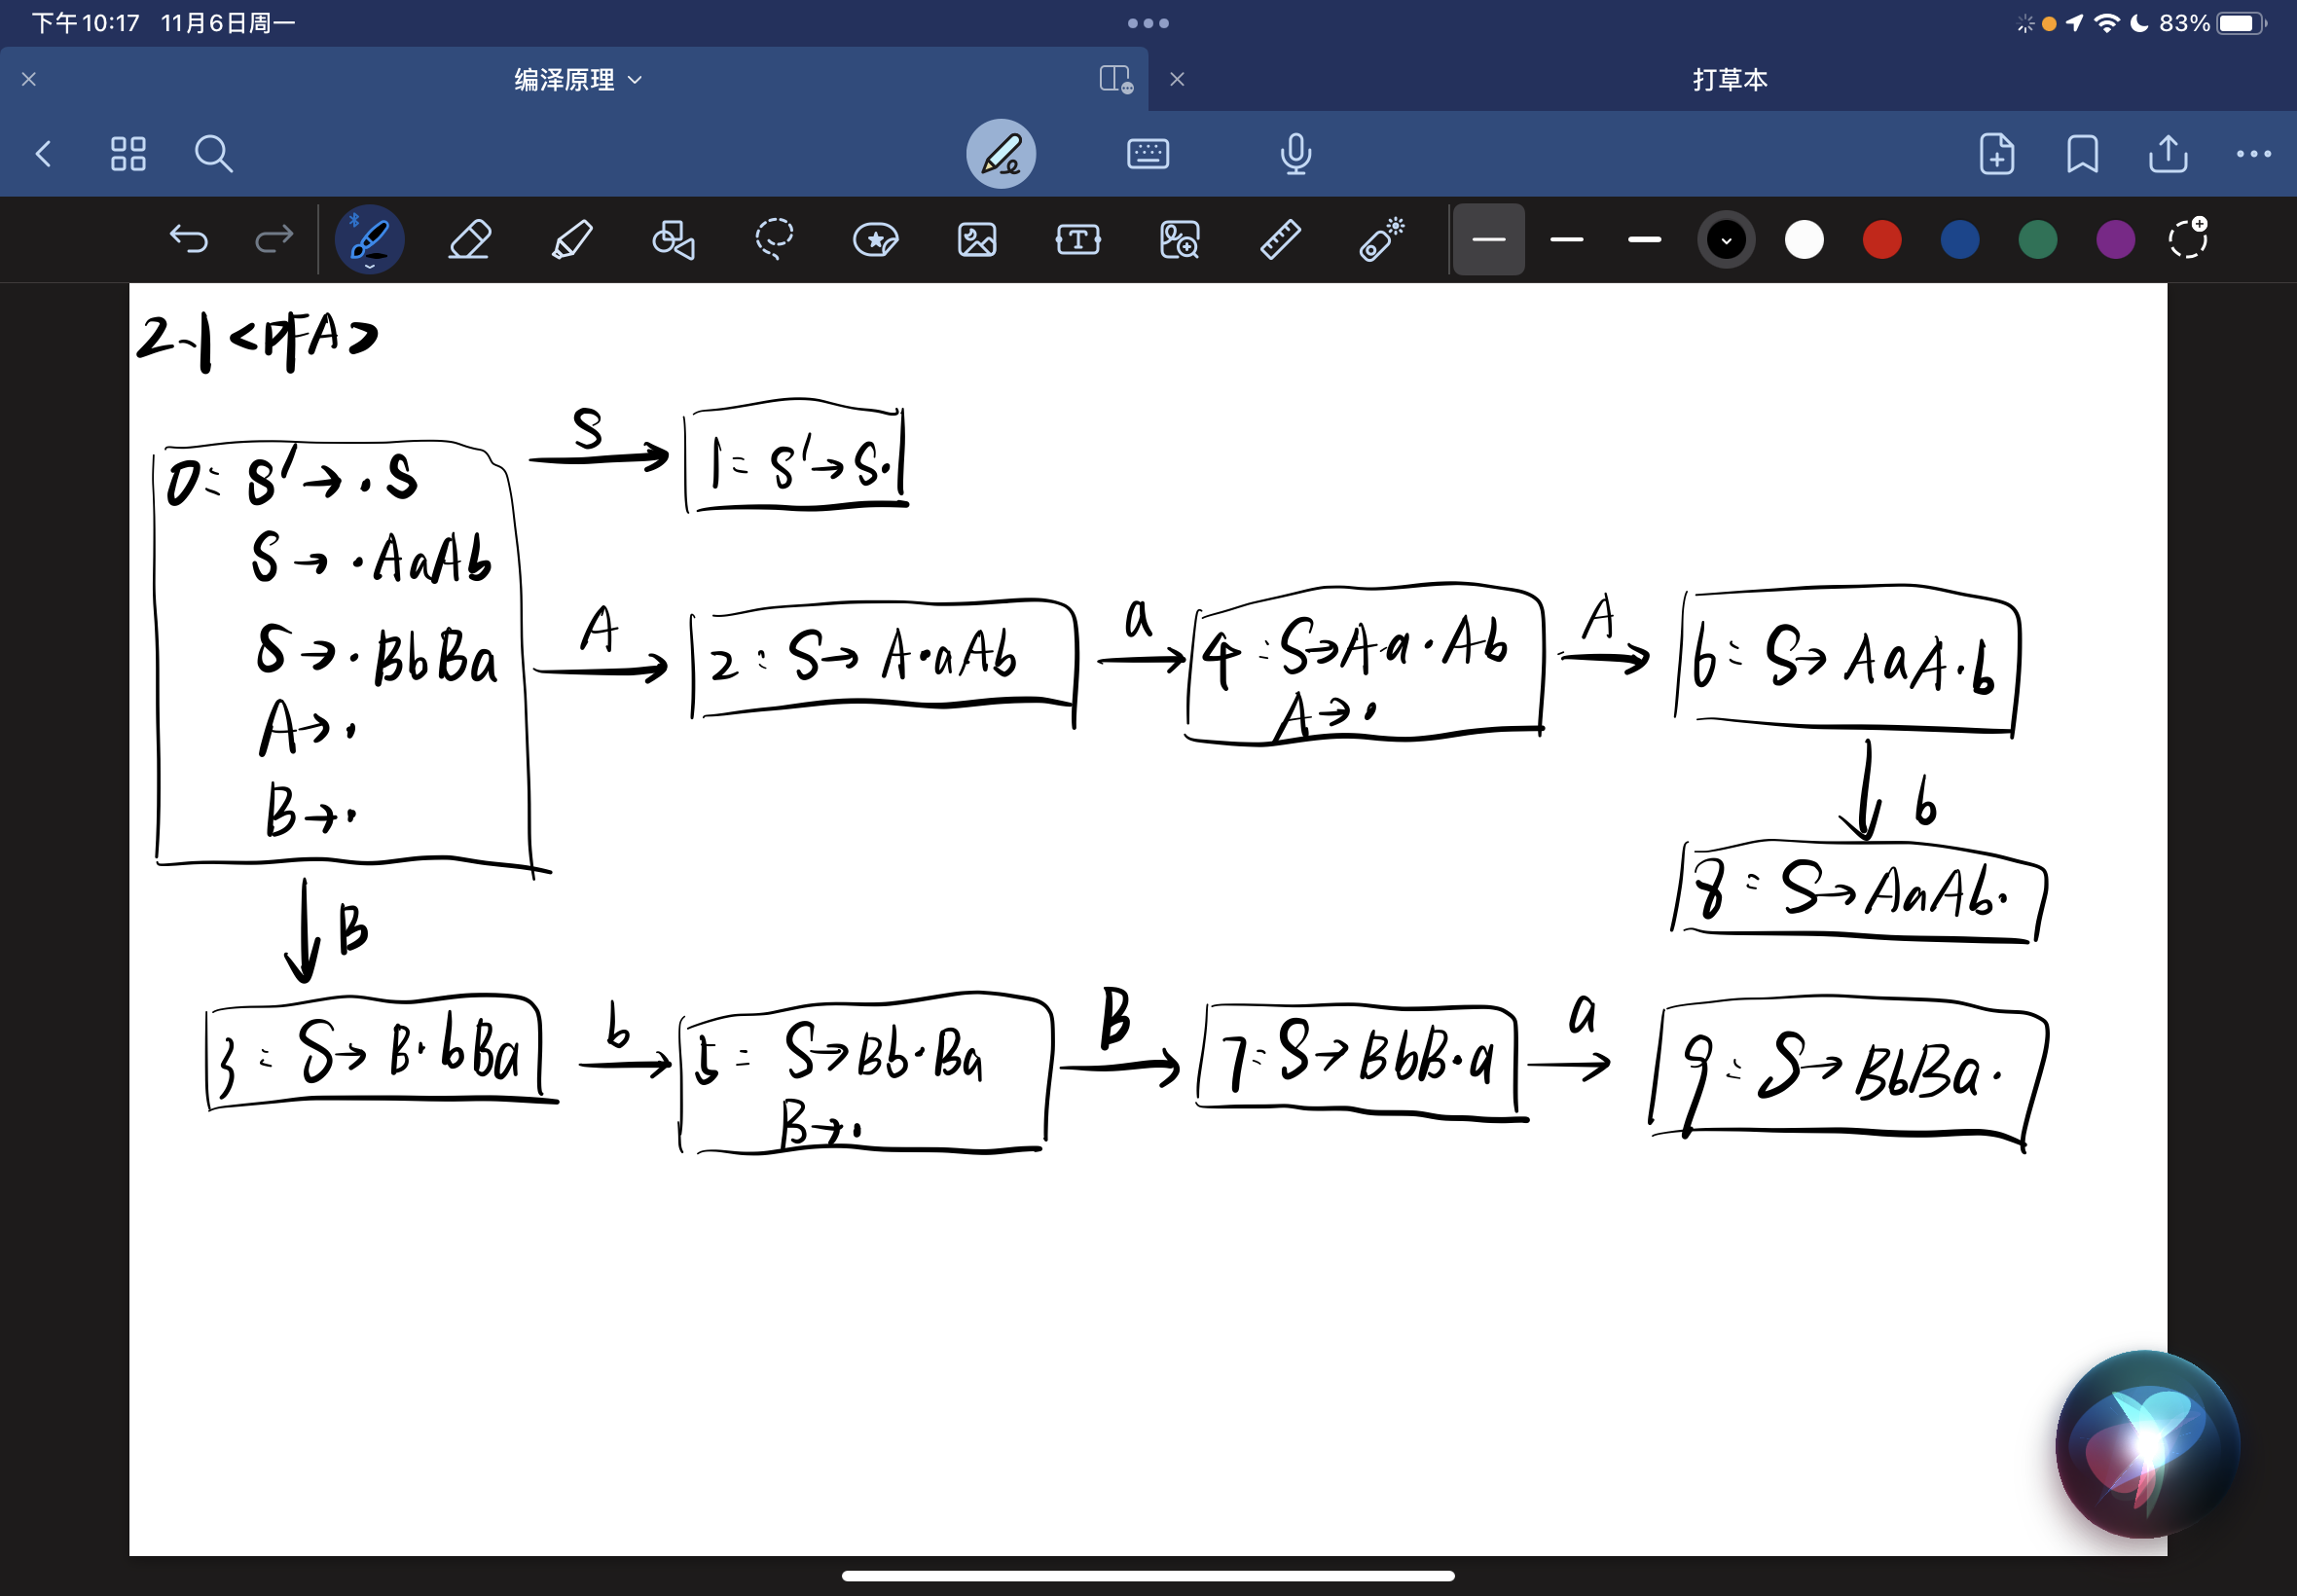 下午10:17 11月6日周一
83%
编泽原理
打草本
2-1 <DFA>
S
0: S' → .S
S → .AaAb
S → .BbBa
A → .
B → .
1: S' → S.
A
2: S → A.aAb
a
4: S → Aa.Ab
A → .
A
6: S → AaA.b
b
8: S → AaAb.
B
3: S → B.bBa
b
5: S → Bb.Ba
B → .
B
7: S → BbB.a
a
9: S → BbBa.